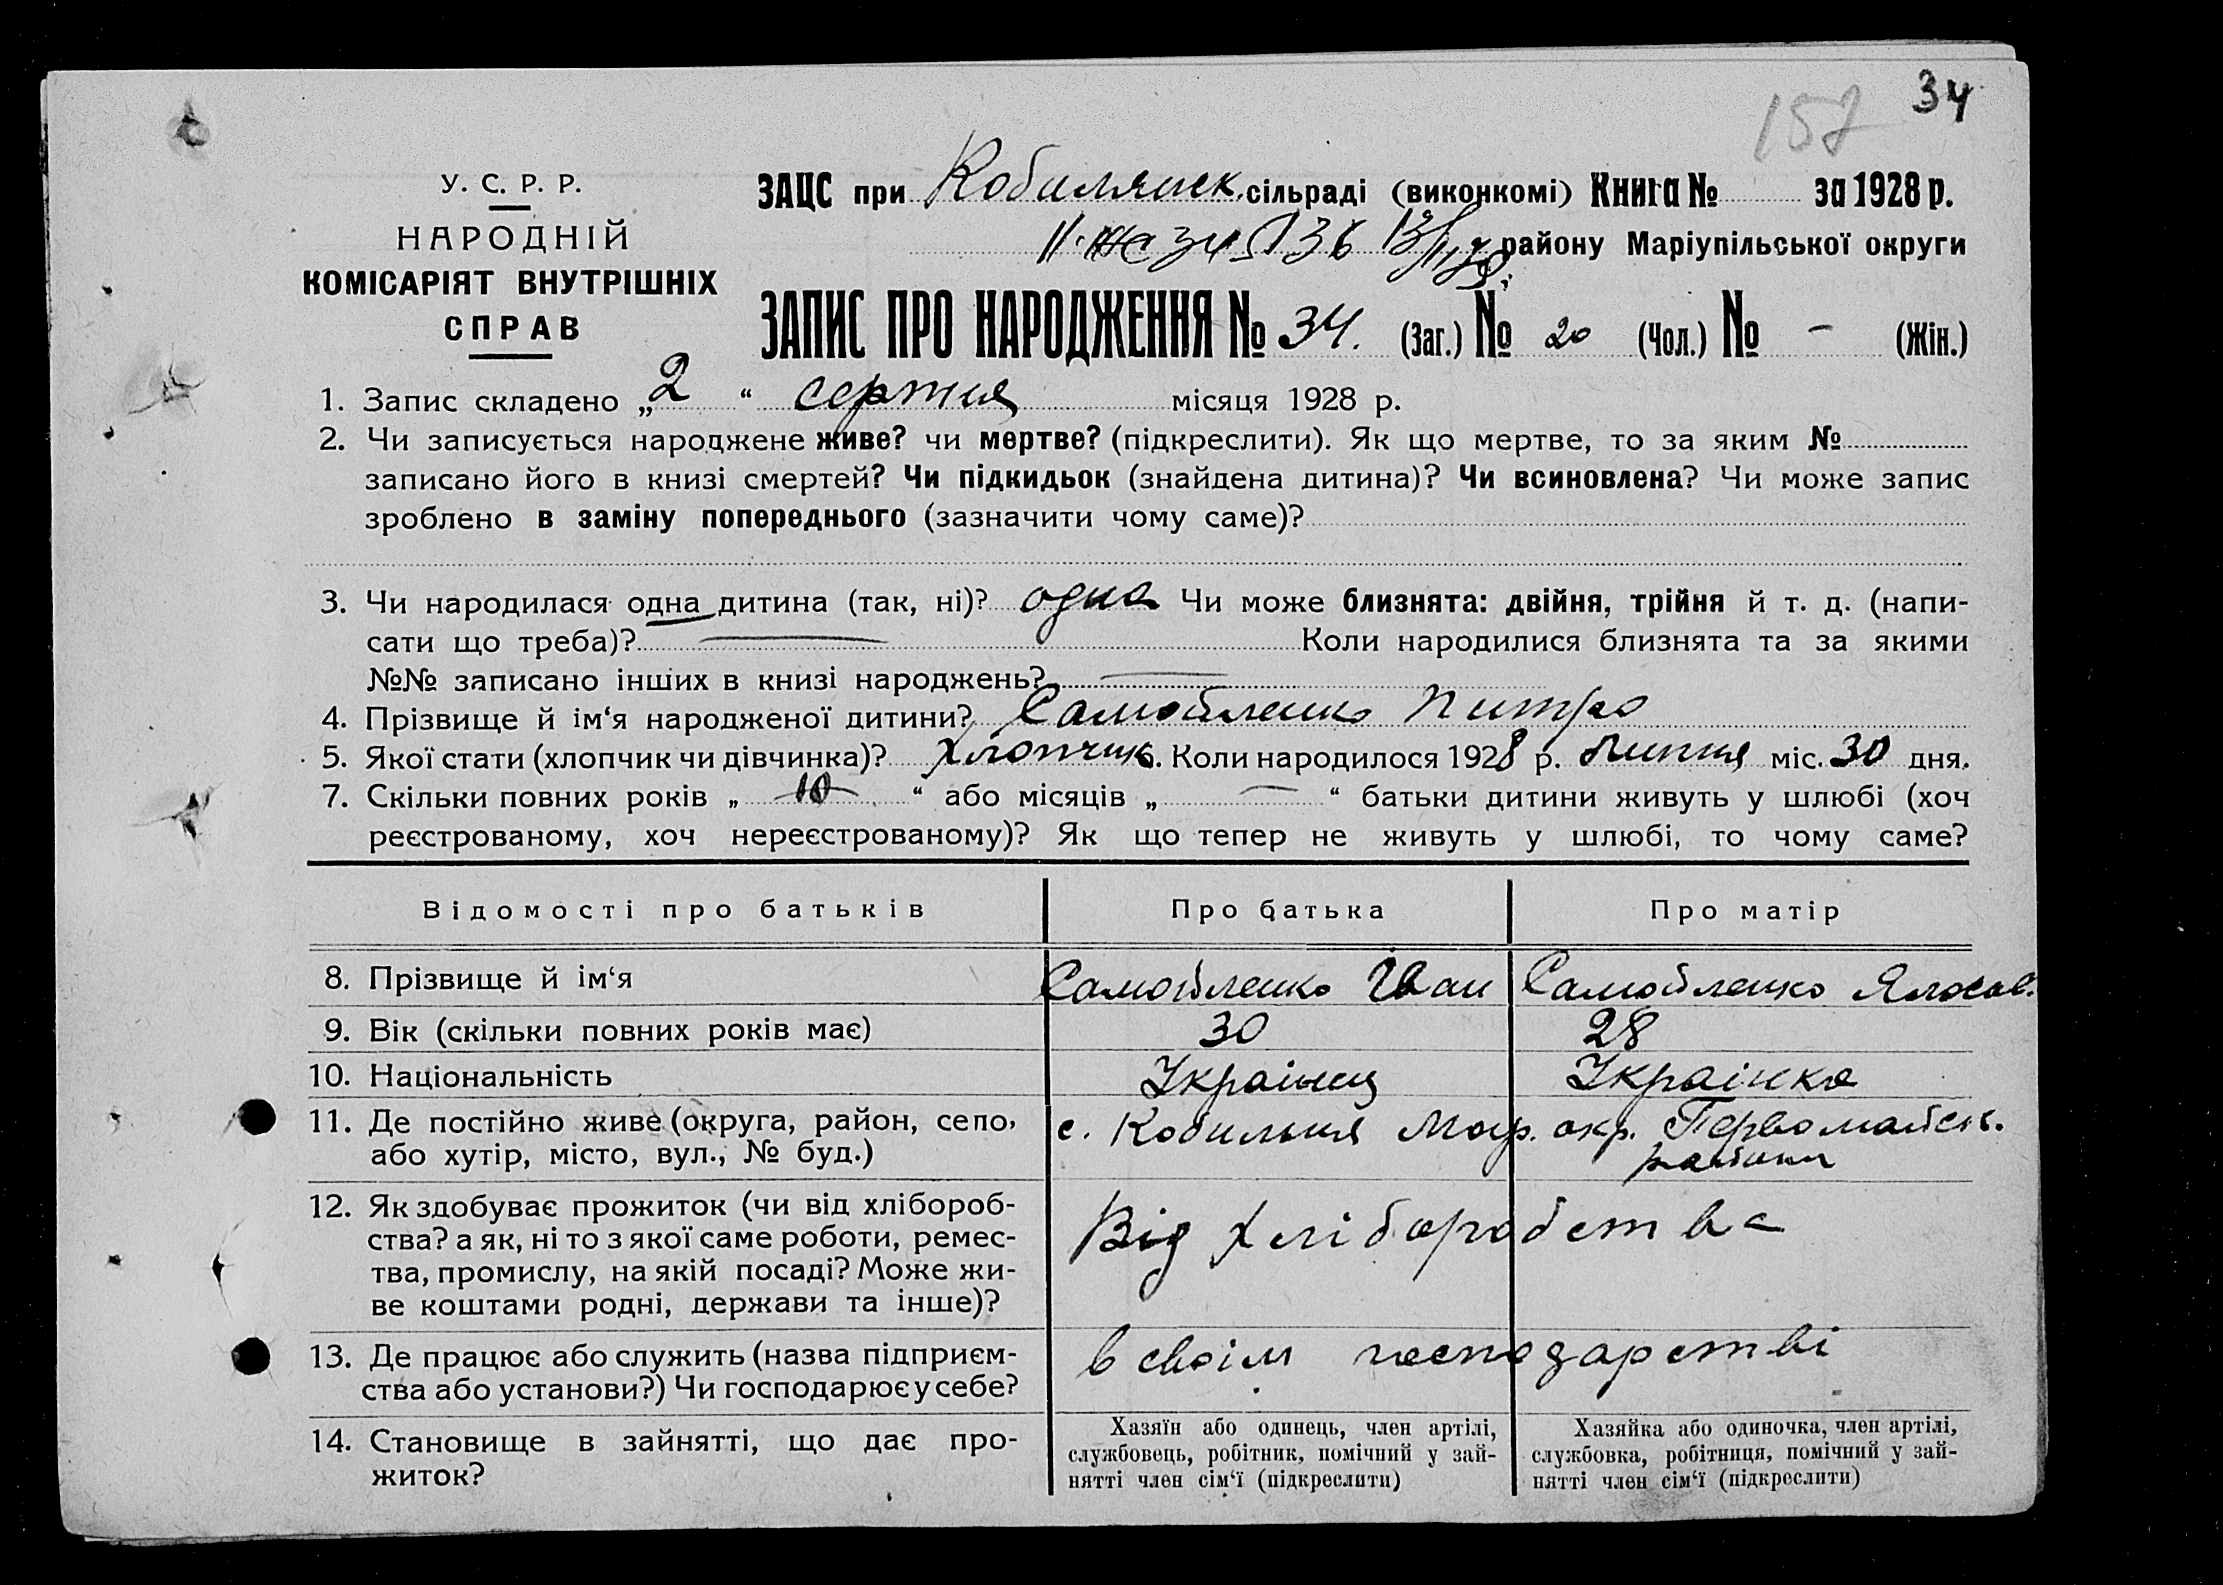 34
157
У. С. Р. Р.
НАРОДНІЙ
КОМІСАРІЯТ ВНУТРІШНІХ
СПРАВ
ЗАЦС при Кобилянск. сільраді (виконкомі) Книга № за 1928 р.
району Маріупільської округи
ЗАПИС ПРО НАРОДЖЕННЯ № 34. (Заг.) № 20 (Чол.) № – (Жін.)
1. Запис складено „ 2 “ серпня місяця 1928 р.
2. Чи записується народжене живе? чи мертве? (підкреслити). Як що мертве, то за яким №
записано його в книзі смертей? Чи підкидьок (знайдена дитина)? Чи всиновлена? Чи може запис
зроблено в заміну попереднього (зазначити чому саме)?
3. Чи народилася одна дитина (так, ні)? одна Чи може близнята: двійня, трійня й т. д. (напи-
сати що треба)? — Коли народилися близнята та за якими
№№ записано інших в книзі народжень? —
4. Прізвище й ім‘я народженої дитини? Самойленко Питро
5. Якої стати (хлопчик чи дівчинка)? Хлопчик. Коли народилося 1928 р. Липня міс. 30 дня.
7. Скільки повних років „ 10 “ або місяців „ — “ батьки дитини живуть у шлюбі (хоч
реєстрованому, хоч нереєстрованому)? Як що тепер не живуть у шлюбі, то чому саме?
Відомості про батьків Про батька Про матір
8. Прізвище й ім‘я Самойленко Іван Самойленко
9. Вік (скільки повних років має) 30 28
10. Національність Українец Українка
11. Де постійно живе (округа, район, село, с. Кобильня Мар. окр. Первомайськ.
або хутір, місто, вул., № буд.) району
12. Як здобуває прожиток (чи від хлібороб- Від хліборобства
ства? а як, ні то з якої саме роботи, ремес-
тва, промислу, на якій посаді? Може жи-
ве коштами родні, держави та інше)?
13. Де працює або служить (назва підприєм- в своїм господарстві
ства або установи?) Чи господарює у себе?
14. Становище в зайнятті, що дає про-
житок?
Хазяїн або одинець, член артілі,
службовець, робітник, помічний у зай-
нятті член сім‘ї (підкреслити)
Хазяйка або одиночка, член артілі,
службовка, робітниця, помічний у зай-
нятті член сім‘ї (підкреслити)